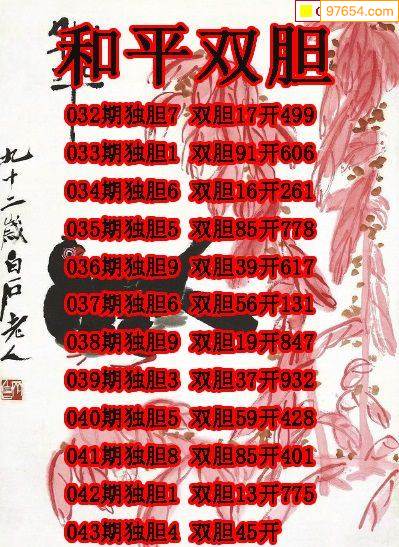 97654.com
和平双胆
032期独胆7 双胆17开499
033期独胆1 双胆91开606
034期独胆6 双胆16开261
035期独胆5 双胆85开778
036期独胆9 双胆39开617
037期独胆6 双胆56开131
038期独胆9 双胆19开847
039期独胆3 双胆37开932
040期独胆5 双胆59开428
041期独胆8 双胆85开401
042期独胆1 双胆13开775
043期独胆4 双胆45开
九十二岁白石老人